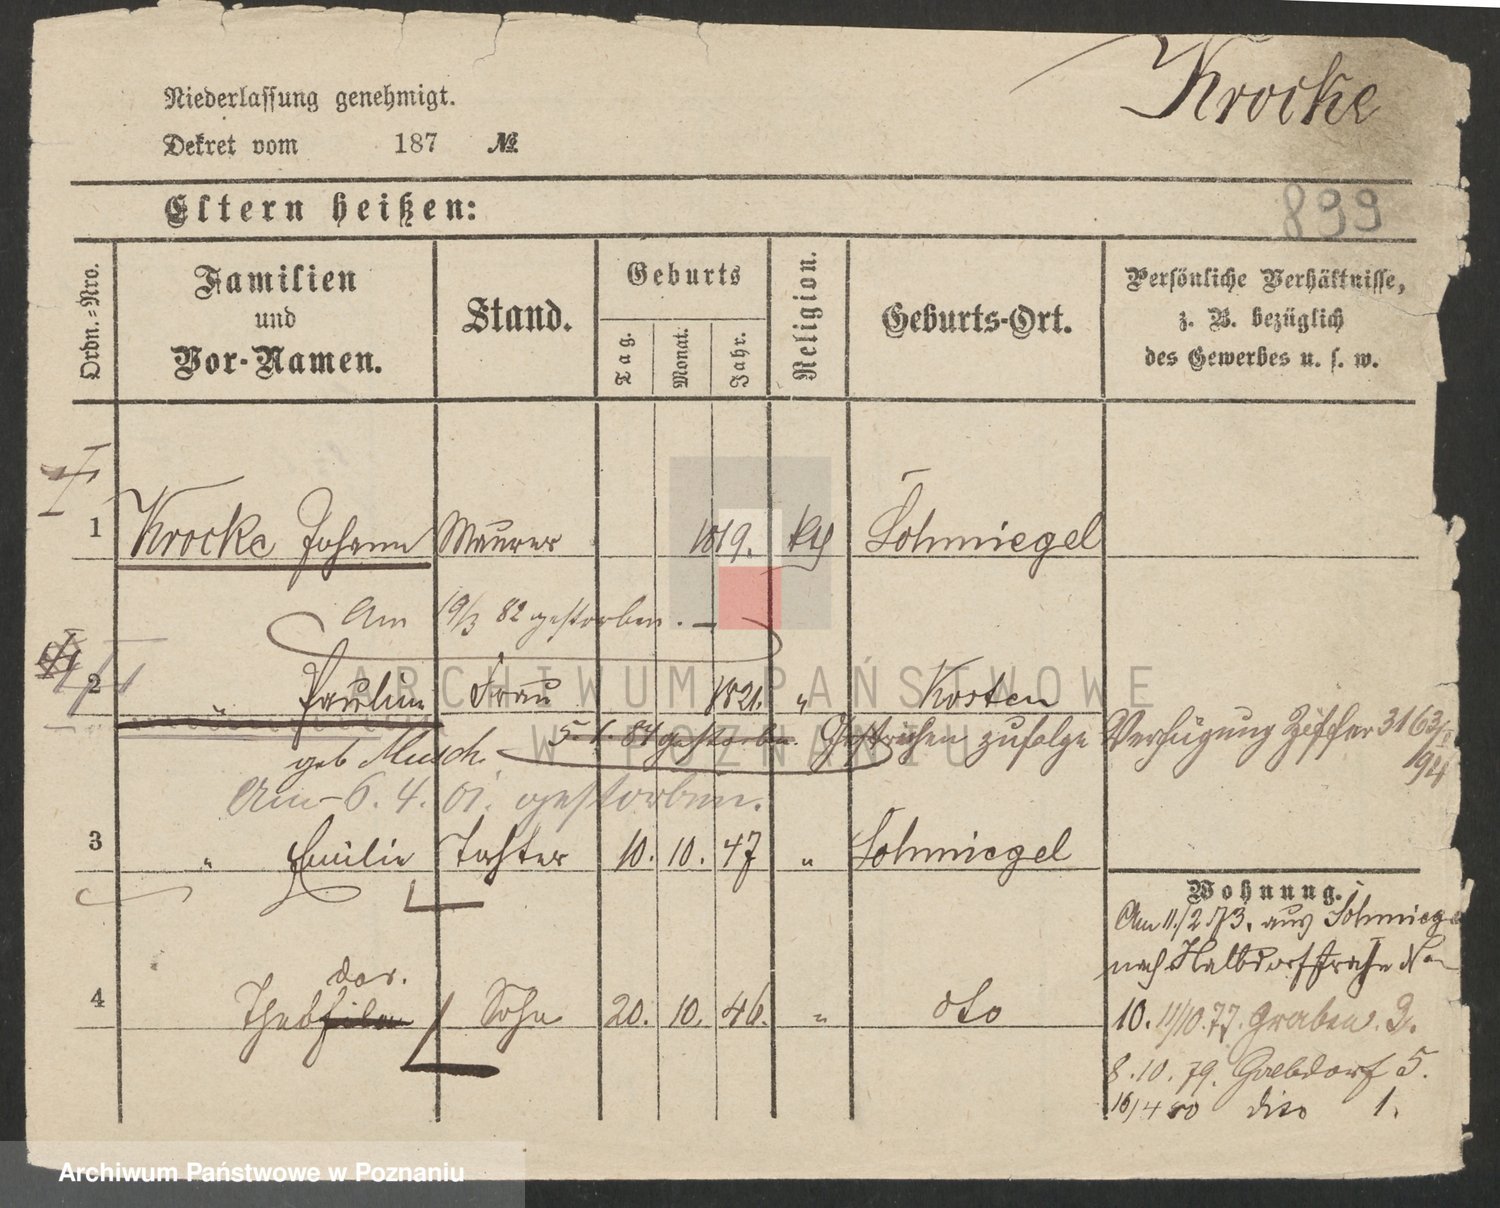 Krocke
Niederlassung genehmigt.
Dekret vom 187 №
899
Eltern heißen:
Ordn.-Nro.
Familien
und
Vor-Namen.
Stand.
Geburts
Tag.
Monat.
Jahr.
Religion.
Geburts-Ort.
Persönliche Verhältnisse,
z. B. bezüglich
des Gewerbes u. s. w.
1 Krocke Johann Maurer 1819. kth Schmiegel
Am 19/3 82 gestorben.
2 " Pauline Frau 1821. " Kosten
geb Musch. 5. 1. 84 gestorben. Gestrichen zufolge Verfügung Ziffer 3163/I
94
Am 6. 4. 01. gestorben.
3 " Emilie Tochter 10. 10. 47 " Schmiegel
Wohnung.
Am 11./2 73. aus Schmiegel
nach Halbdorfstraße No
dor.
4 Theofila Sohn 20. 10. 46. " dto
10. 11/10. 77. Graben. 3.
8. 10. 79. Halbdorf 5.
16/4 80 dito 1.
ARCHIWUM PAŃSTWOWE
W POZNANIU
Archiwum Państwowe w Poznaniu